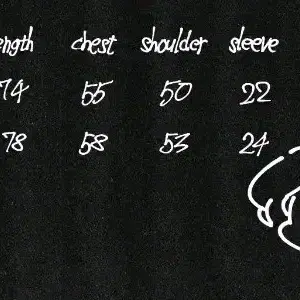 ength chest shoulder sleeve
74 55 50 22
78 58 53 24